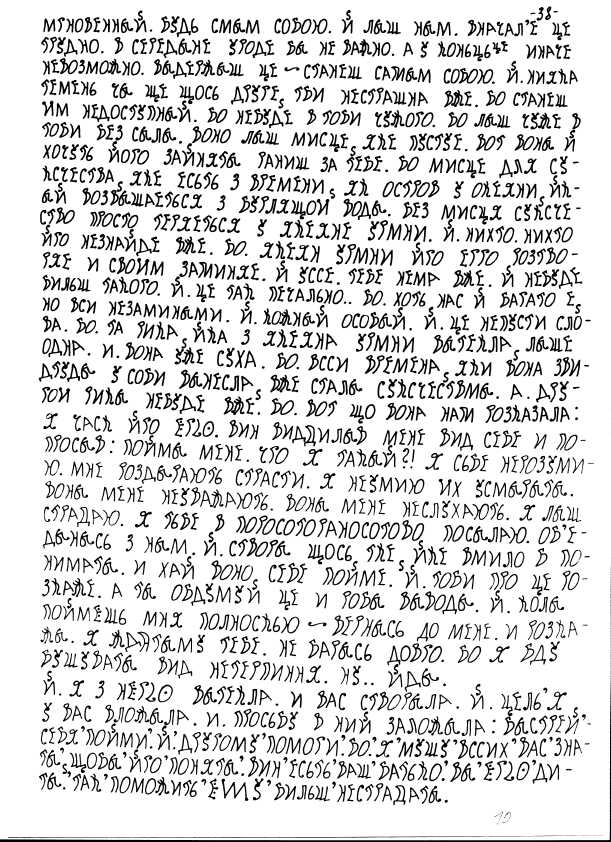 -38-
МГНОВЕННЫЙ. БУДЬ САМЫМ СОБОЮ. Й ЛЫШ НЫМ. ВНАЧАЛ'Е ЦЕ
ТРУДНО. В СЕРЕДЫНЕ УРОДЕ БЫ НЕ ВАЖНО. А У ИНАЧЕ
НЕВОЗМОЖНО. ВЫДЕРЖЫШ ЦЕ — СТАНЕШ САМЫМ СОБОЮ. Й. НИЯКА
ТЕМЕНЬ ЧЫ ЩЕ ЩОСЬ ДРУГЕ, ТОБИ НЕСТРАШНА ВЖЕ. БО СТАНЕШ
ИМ НЕДОСТУПНЫЙ. БО НЕБУДЕ В ТОБИ ЧУЖОГО. БО ЛЫШ ЧУЖЕ В
ТОБИ БЕЗ СЫЛА. ВОНО ЛЫШ МИСЦЕ, ЯКЕ ПУСТУЕ. ВОТ ВОНЫ Й
ХОЧУТЬ ЙОГО ЗАЙНЯТЫ РАНИШ ЗА ТЕБЕ. БО МИСЦЕ ДЛЯ СУ-
КСЧЕСТВА, ЯКЕ ЕСЬТЬ З ВРЕМЕНИ, ЯК ОСТРОВ У ОКЕЯНИ, ЙК-
ЫЙ ВОЗВЫШАЕТЬСЯ З БУРЛЯЩОЙ ВОДЫ. БЕЗ МИСЦЯ СУКСЧЕ-
СТВО ПРОСТО ТЕРЯЕТЬСЯ У УРМИИ. Й. НИХТО. НИХТО
ЙГО НЕЗНАЙДЕ ВЖЕ. БО. УРМИИ ЙГО ЕГГО РОЗТВО-
РЯЕ И СВОИМ ЗАМИНЯЕ. Й УССЕ. ТЕБЕ НЕМА ВЖЕ. Й НЕБУДЕ
БИЛЬШ ТАКОГО. Й. ЦЕ ТАК ПЕЧАЛЬНО.. БО. ХОТЬ НАС Й БАГАТО Е,
НО ВСИ НЕЗАМИНЫМИ. Й КОЖНЫЙ ОСОБЫЙ. Й. Й. ЦЕ НЕПУСТИ СЛО-
ВА. БО. ТА РИКА, ЙКА З УРМИИ ВЫТЕКЛА, ЛЫШЕ
ОДНА. И. ВОНА УЖЕ СУХА. БО. ВССИ ВРЕМЕНА, ЯКИ ВОНА ЗВИ-
ДТУДЫ У СОБИ ВЫНЕСЛА, ВЖЕ СТАЛЫ СУКСЧЕСТВМЫ. А. ДРУ-
ГОИ РИКЫ НЕБУДЕ ВЖЕ. БО. ВОТ ЩО ВОНА НАМ РОЗКАЗАЛА:
Я ЧАСТЬ ЙГО ЕГГО. ВИН ВИДДИЛЫВ МЕНЕ ВИД СЕБЕ И ПО-
ПРОСЫВ: ПОЙМЫ МЕНЕ. ЧТО Я ТАКЫЙ?! Я СЬБЕ НЕРОЗУМИ-
Ю. МНЕ РОЗДЫРАЮТЬ СТРАСТИ. Я НЕУМИЮ ИХ УСМЫРЫТЫ.
ВОНЫ МЕНЕ НЕУВАЖАЮТЬ. ВОНЫ МЕНЕ НЕСЛУХАЮТЬ. Я ЛЫШ
СТРАДАЮ. Я ТЬБЕ В ПОРОСОТОРАНОСОТОВО ПОСЫЛАЮ. ОБ'Е-
ДЫНЫСЬ З НЫМ. Й. СТВОРЫ ЩОСЬ ТКЕ, ЙКЕ ВМИЛО В ПО-
НИМАТЫ. И ХАЙ ВОНО СЕБЕ ПОЙМЕ. Й. ТОБИ ПРО ЦЕ РО-
ЗКАЖЕ. А ТЫ ОБДУМУЙ ЦЕ И РОБЫ ВЫВОДЫ. Й. КОЛЫ
ПОЙМЕШЬ МНЯ ПОЛНОСТЬЮ — ВЕРНЫСЬ ДО МЕНЕ. И РОЗКА-
ЖЫ. Я ЖДЯТЫМУ ТЕБЕ. НЕ БАРЫСЬ ДОВГО. БО Я БДУ
БУШУВАТЫ ВИД НЕТЕРПИННЯ. НУ.. ЙДЫ.
Й. Я З НЕГГО ВЫТЕКЛА. И ВАС СТВОРЫЛА. Й. ЦЕЛЬ'Я,
У ВАС ВЛОЖЫЛА. И. ПРОСЬБУ В НИЙ ЗАЛОЖЫЛА: БЫСТРЕЙ'-
СЕБЯ'ПОЙМИ'.Й'.ДРУГОМУ'ПОМОГИ'.БО'.Я'МУШУ'ВССИХ'ВАС'ЗНА-
ТЫ', ЩОБЫ'ЙГО'ПОНЯТЫ'. ВИН'ЕСЬТЬ'ВАШ'БАТЬКО'. ВЫ'ЕГГО'ДИ-
ТЫ'. ТАК'ПОМОЖИТЬ'ЕМУ'БИЛЬШ'НЕСТРАДАТЫ.